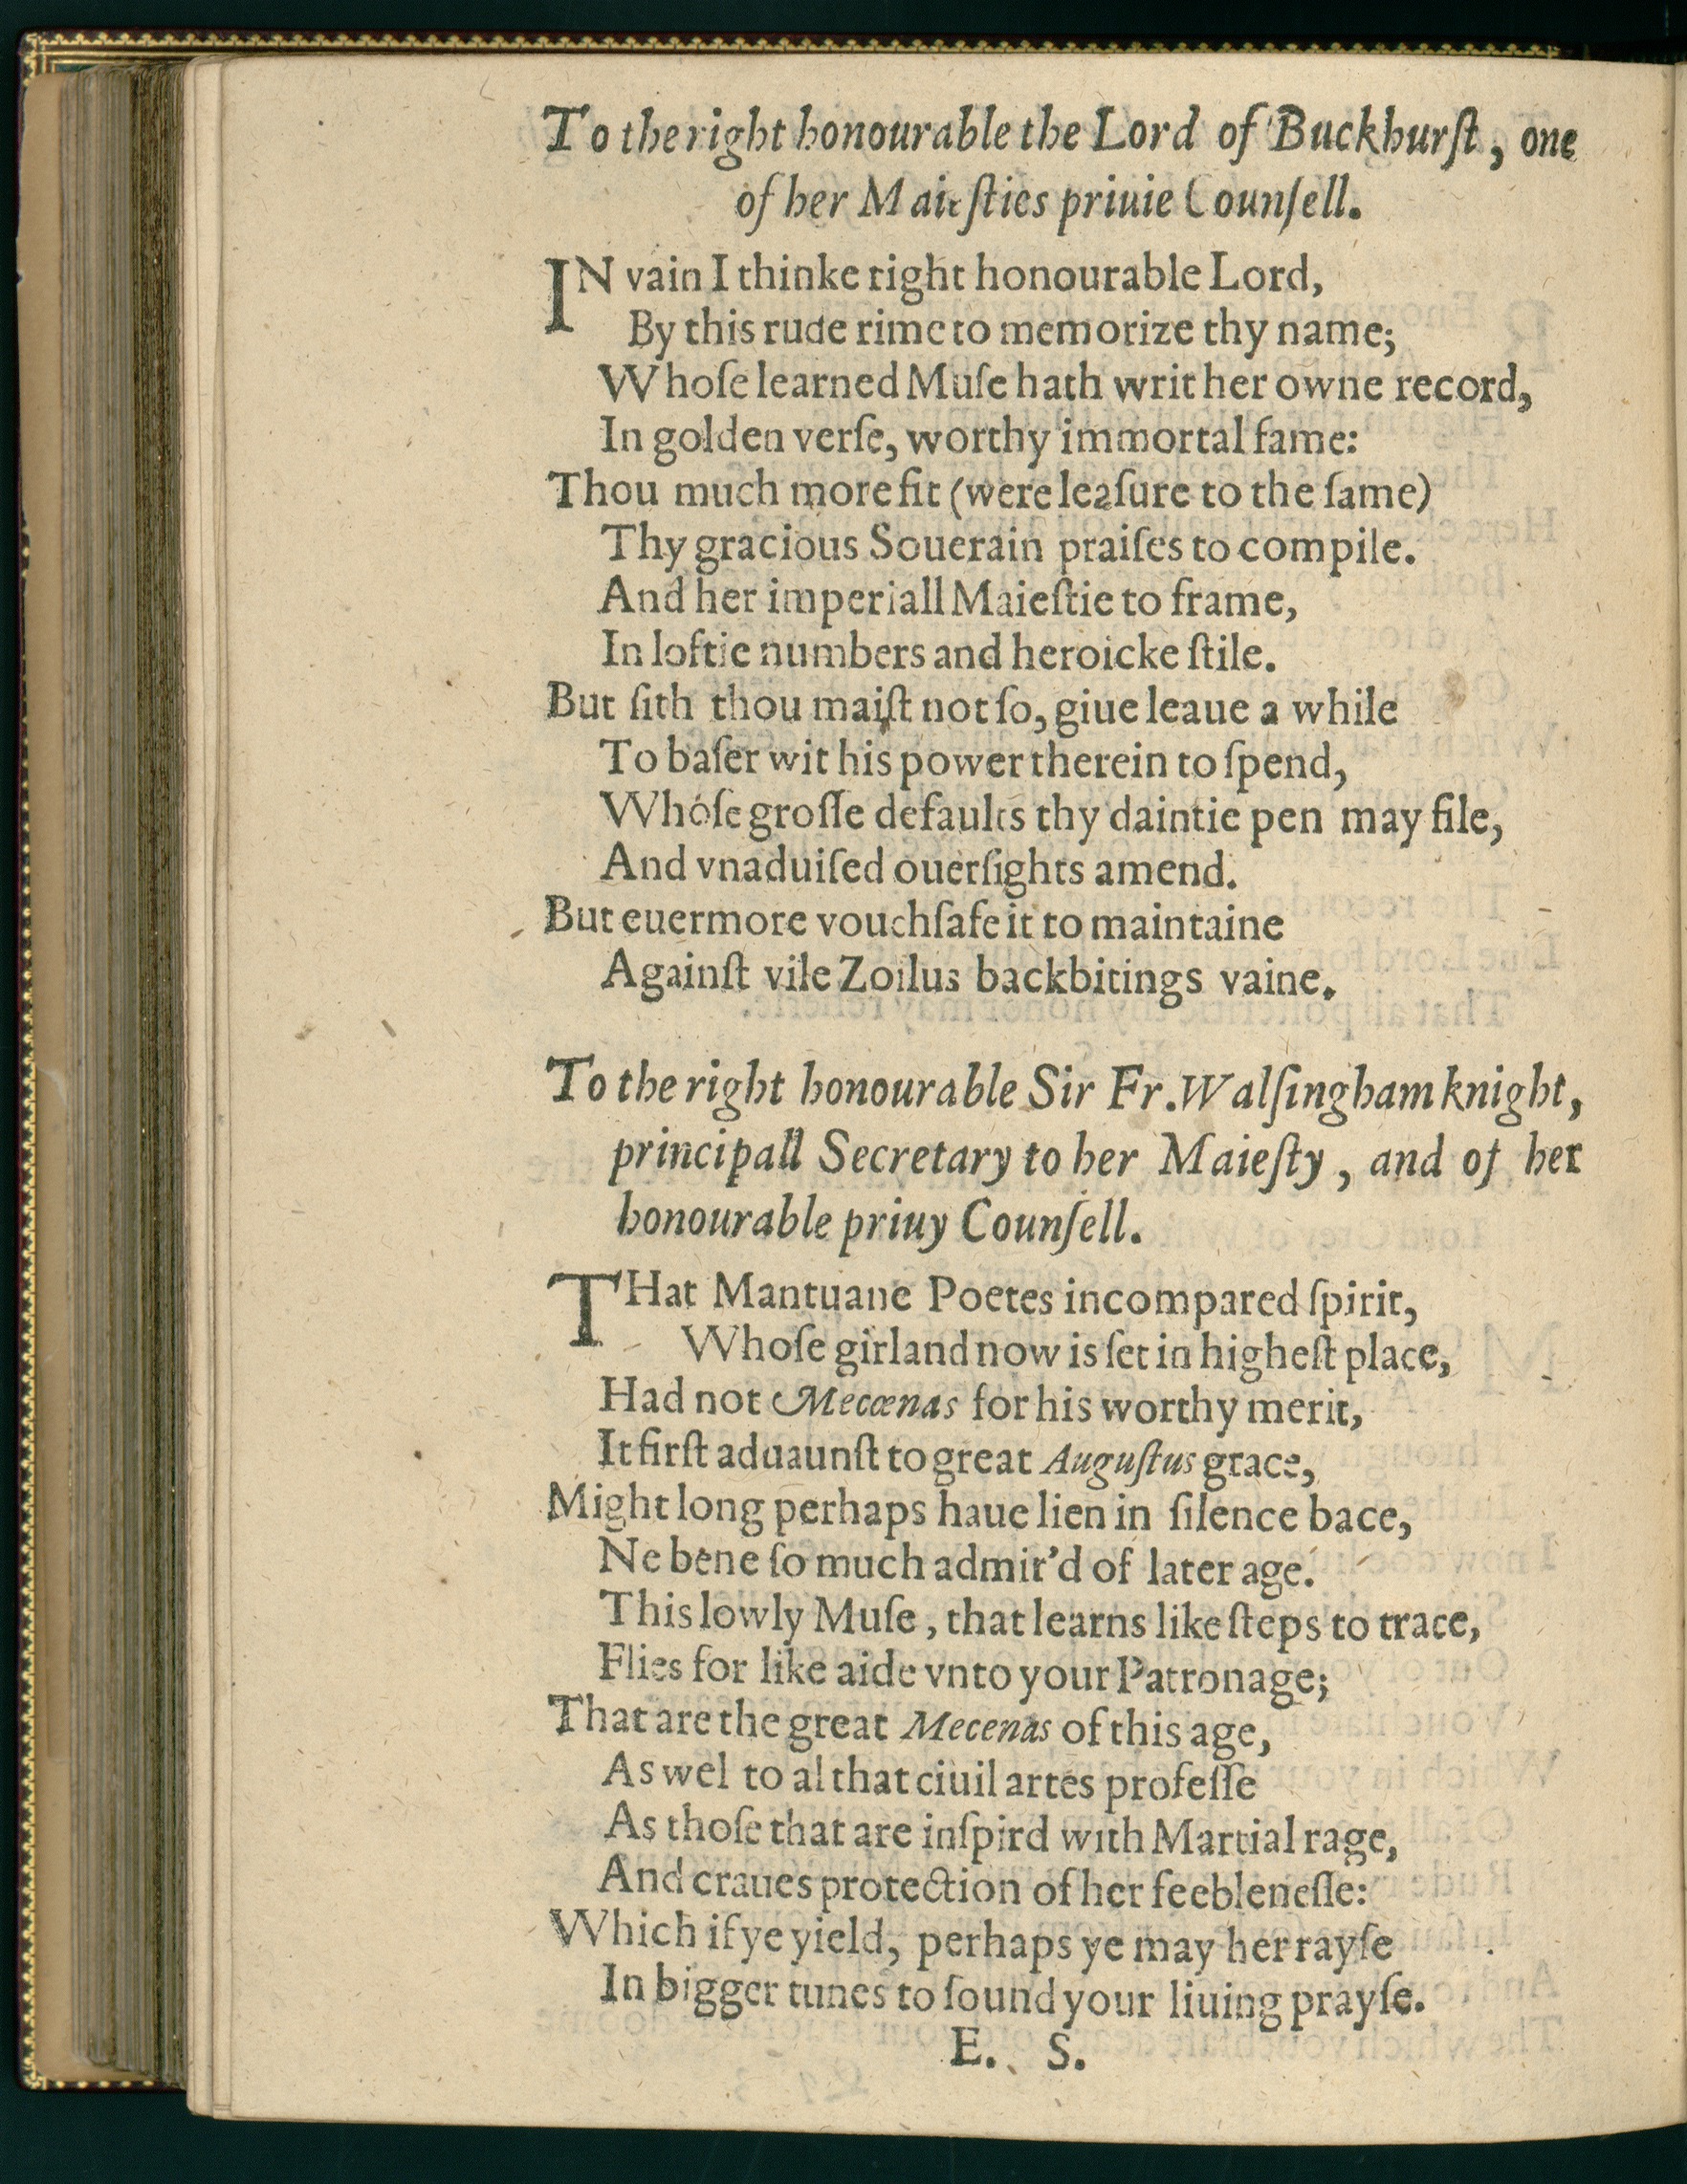 To the right honourable the Lord of Buckhurſt, one
of her Maieſties priuie Counſell.
IN vain I thinke right honourable Lord,
By this rude rime to memorize thy name;
Whoſe learned Muſe hath writ her owne record,
In golden verſe, worthy immortal fame:
Thou much more fit (were leaſure to the ſame)
Thy gracious Souerain praiſes to compile.
And her imperiall Maieſtie to frame,
In loftie numbers and heroicke ſtile.
But ſith thou maiſt not ſo, giue leaue a while
To baſer wit his power therein to ſpend,
Whoſe groſſe defaults thy daintie pen may file,
And vnaduiſed ouerſights amend.
But euermore vouchſafe it to maintaine
Againſt vile Zoilus backbitings vaine.
To the right honourable Sir Fr. Walſingham knight,
principall Secretary to her Maieſty, and of her
honourable priuy Counſell.
THat Mantuane Poetes incompared ſpirit,
Whoſe girland now is ſet in higheſt place,
Had not Mecœnas for his worthy merit,
It firſt aduaunſt to great Auguſtus grace,
Might long perhaps haue lien in ſilence bace,
Ne bene ſo much admir'd of later age.
This lowly Muſe, that learns like ſteps to trace,
Flies for like aide vnto your Patronage;
That are the great Mecenas of this age,
As wel to al that ciuil artes profeſſe
As thoſe that are inſpird with Martial rage,
And craues protection of her feebleneſſe:
Which if ye yield, perhaps ye may her rayſe
In bigger tunes to ſound your liuing prayſe.
E. S.